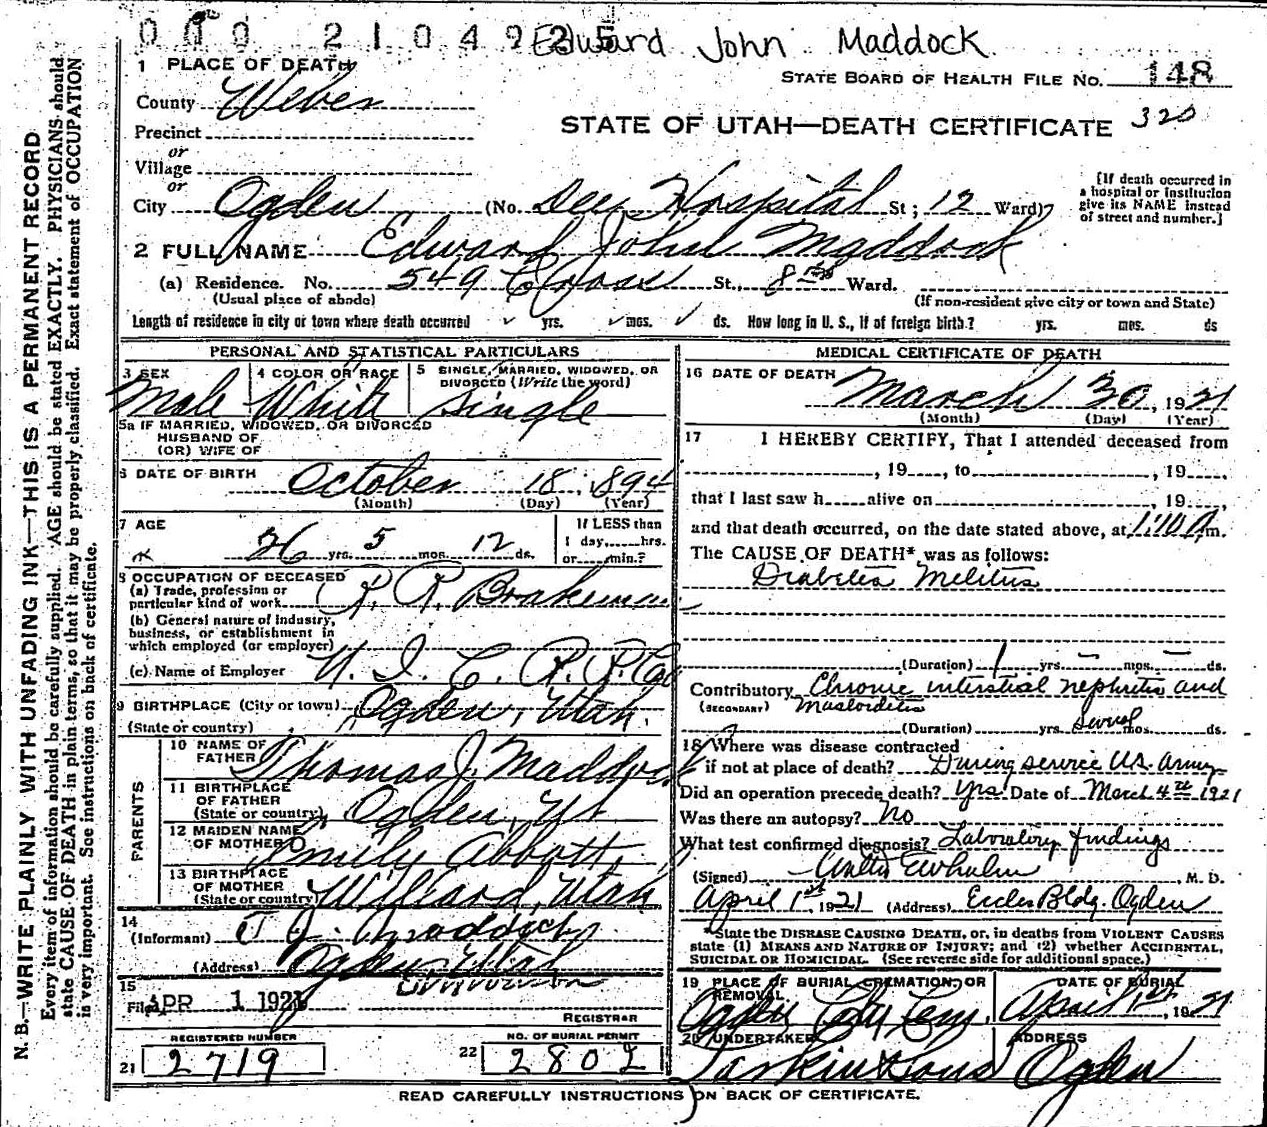 000 2104925 Edward John Maddock
1 PLACE OF DEATH
STATE BOARD OF HEALTH FILE No. 148
County Weber
STATE OF UTAH—DEATH CERTIFICATE 320
Precinct
or
Village
or
City Ogden (No. Dee Hospital St; 12 Ward)
[If death occurred in
a hospital or institution
give its NAME instead
of street and number.]
2 FULL NAME Edward John Maddock
(a) Residence. No. 549 Cross St., 8th Ward.
(Usual place of abode) (If non-resident give city or town and State)
Length of residence in city or town where death occurred yrs. mos. ds. How long in U. S., if of foreign birth? yrs. mos. ds
PERSONAL AND STATISTICAL PARTICULARS
3 SEX 4 COLOR OR RACE 5 SINGLE, MARRIED, WIDOWED, OR
DIVORCED (Write the word)
Male White Single
5a IF MARRIED, WIDOWED, OR DIVORCED
HUSBAND OF
(OR) WIFE OF
6 DATE OF BIRTH October 18, 1894
(Month) (Day) (Year)
7 AGE 26 yrs. 5 mos. 12 ds.
If LESS than
1 day,....hrs.
or....min.?
8 OCCUPATION OF DECEASED
(a) Trade, profession or
particular kind of work R. R. Brakeman
(b) General nature of industry,
business, or establishment in
which employed (or employer)
(c) Name of Employer U. I. C. R. R. Co
9 BIRTHPLACE (City or town) Ogden, Utah.
(State or country)
PARENTS
10 NAME OF
FATHER Thomas J. Maddock
11 BIRTHPLACE
OF FATHER
(State or country) Ogden, Ut
12 MAIDEN NAME
OF MOTHER Emily Abbott,
13 BIRTHPLACE
OF MOTHER
(State or country) Willard, Utah
14
(Informant) T J. Maddock
(Address) Ogden, Utah
15
Filed APR 1 1921
REGISTRAR
REGISTERED NUMBER NO. OF BURIAL PERMIT
21 2719 22 2802
MEDICAL CERTIFICATE OF DEATH
16 DATE OF DEATH March 30, 1921
(Month) (Day) (Year)
17 I HEREBY CERTIFY, That I attended deceased from
, 19, to , 19
that I last saw h alive on , 19
and that death occurred, on the date stated above, at 1:10 A m.
The CAUSE OF DEATH* was as follows:
Diabetes Melitus
(Duration) 1 yrs. – mos. – ds.
Contributory Chronic interstial nephritis and
(SECONDARY) Mastoiditis
(Duration) yrs. several mos. ds.
18 Where was disease contracted
if not at place of death? During service U.S. Army
Did an operation precede death? Yes Date of March 4th 1921
Was there an autopsy? No
What test confirmed diagnosis? Laboratory findings
(Signed) , M. D.
April 1st, 1921 (Address) Eccles Bldg. Ogden
*State the DISEASE CAUSING DEATH, or, in deaths from VIOLENT CAUSES
state (1) MEANS AND NATURE OF INJURY; and (2) whether ACCIDENTAL,
SUICIDAL OR HOMICIDAL. (See reverse side for additional space.)
19 PLACE OF BURIAL, CREMATION, OR
REMOVAL
DATE OF BURIAL
Ogden City Cem. April 1st, 1921
20 UNDERTAKER ADDRESS
Larkin & Sons Ogden
READ CAREFULLY INSTRUCTIONS ON BACK OF CERTIFICATE.
N. B.—WRITE PLAINLY WITH UNFADING INK—THIS IS A PERMANENT RECORD
Every item of information should be carefully supplied. AGE should be stated EXACTLY. PHYSICIANS should
state CAUSE OF DEATH in plain terms, so that it may be properly classified. Exact statement of OCCUPATION
is very important. See instructions on back of certificate.